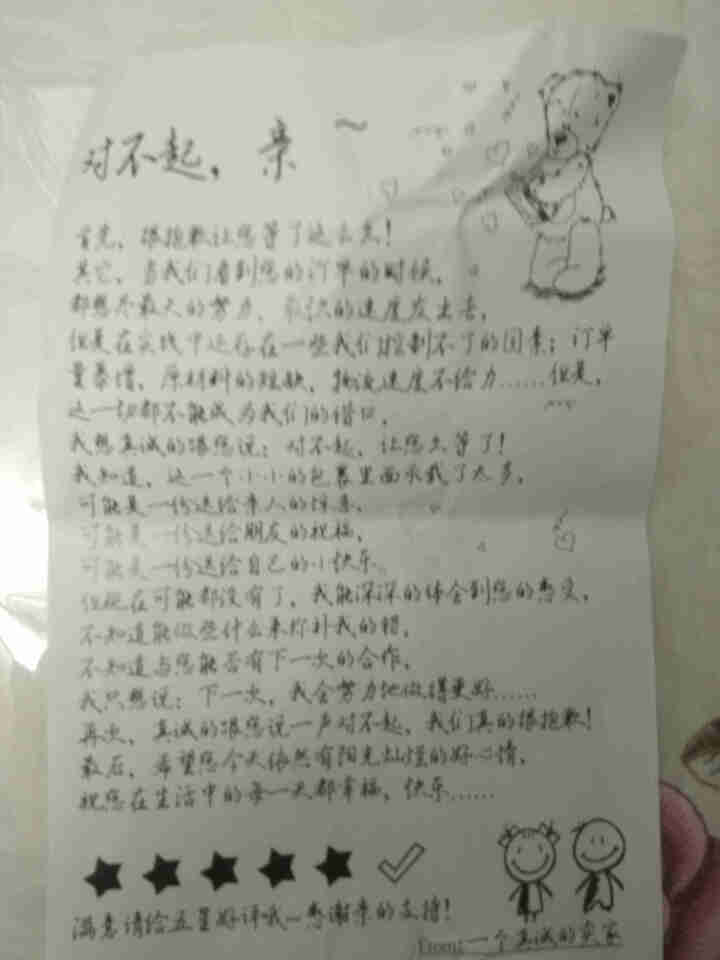 对不起，亲~
首先，很抱歉让您等了这么久！
其它，当我们看到您的订单的时候，
都想尽最大的努力、最快的速度发出去，
但是在实践中还存在一些我们控制不了的因素：订单
量暴增，原材料的短缺，物流速度不给力……但是，
这一切都不能成为我们的借口，
我想真诚的跟您说：对不起，让您久等了！
我知道，这一个小小的包裹里面承载了太多，
可能是一份送给亲人的惊喜，
可能是一份送给朋友的祝福，
可能是一份送给自己的小快乐。
但现在可能都没有了，我能深深的体会到您的感受，
不知道能做些什么来弥补我的错，
不知道与您能否有下一次的合作，
我只想说：下一次，我会努力地做得更好……
再次，真诚的跟您说一声对不起，我们真的很抱歉！
最后，希望您今天依然有阳光灿烂的好心情，
祝您在生活中的每一天都幸福，快乐……
满意请给五星好评哦~感谢亲的支持！
From:一个真诚的卖家